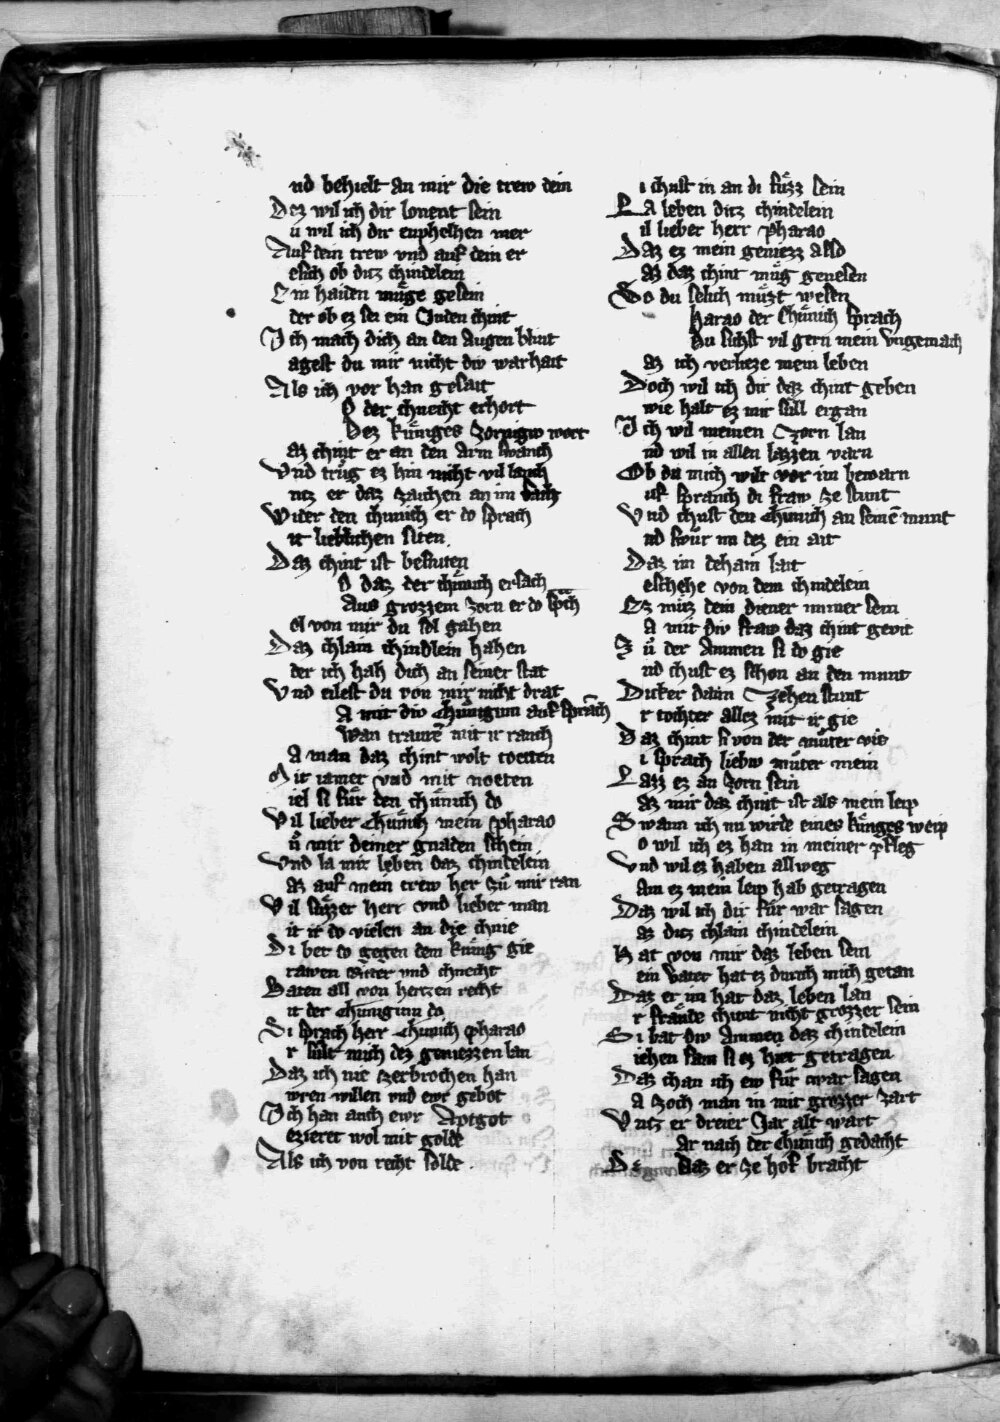 nd behielt an mir die trew dein
Dez wil ich dir lonent sein
ü wil ich dir enphelhen mer
Auf dein trew vnd auf dein er
esich ob ditz chindelein
Ein haiden müge gesein
der ob ez sei ein Juden chint
Ich mach dich an den Augen blint
agest du mir nicht div warhait
Als ich vor han gesait
O der chnecht erhort
Dez küniges zornigiv wort
az chint er an den arm swanch
Vnd trüg ez hin nicht vil lanch
ntz er daz zaichen an im sach
Wider den chunich er do sprach
it lieblichen siten
Daz chint ist besniten
O daz der chünich ersach
Aus grozzem zorn er do sprach
ol von mir du sol gahen
Daz chlain chindlein hahen
der ich hah dich an seiner stat
Vnd eilest du von mir nicht drat
A mit div chüniginn auf sprach
Wan trauren mit ir ranch
A man daz chint wolt toetten
Mit iamer vnd mit noeten
iel si für den chünich do
Vil lieber chünich mein pharao
ü mir deiner gnaden schein
Vnd la mir leben daz chindelein
az auf mein trew her zü mir ran
Vil süzzer herr vnd lieber man
it ir do vielen an die chnie
Di bet do gegen dem künig gie
rawen Ritter vnd chnecht
Baten all von hertzen recht
it der chuniginn do
Si sprach herr chunich pharao
r sült mich dez geniezzen lan
Daz ich nie zerbrochen han
wren willen vnd ewr gebot
Ich han auch ewr Aptgot
ezieret wol mit golde
Als ich von recht solde
i chust in an di füzz sein
La leben ditz chindelein
il lieber herr pharao
Daz ez mein geniezz also
az daz chint müg genesen
So du selich müzt wesen
harao der chünich sprach
Du sichst vil gern mein vngemach
az ich verlieze mein leben
Doch wil ich dir daz chint geben
wie halt ez mir süll ergan
Ich wil meinen zorn lan
nd wil in allen lazzen varn
Ob du mich wilt vor im bewarn
uf spranch di fraw ze stunt
Vnd chust den chunich an seinen munt
nd swür im dez ein ait
Daz im dehain lait
eschehe von dem chindelein
Ez müz dein diener immer sein
A mit div fraw daz chint gevie
Zü der Ammen si do gie
nd chust ez schon an den munt
Dicker dann zehen stunt
r tochter allez mit ir gie
Daz chint si von der müter vie
i sprach liebiv müter mein
Laz ez an zorn sein
az mir daz chint ist als mein leip
Swann ich nu wirde eines künges weip
o wil ich ez han in meiner pfleg
Vnd wil ez haben allweg
Am ez mein leip hab getragen
Daz wil ich dir für war sagen
az ditz chlain chindelein
Hat von mir daz leben sein
ein vater hat ez durich mich getan
Daz er im hat daz leben lan
r fräude chunt nicht grozzer sein
Si bat div Ammen daz chindelein
iehen sam si ez hiet getragen
Daz chan ich ew für war sagen
A zoch man in mit grozzer zart
Vntz er dreier Jar alt wart
Ar nach der chünich gedacht
Daz er ze hof bracht